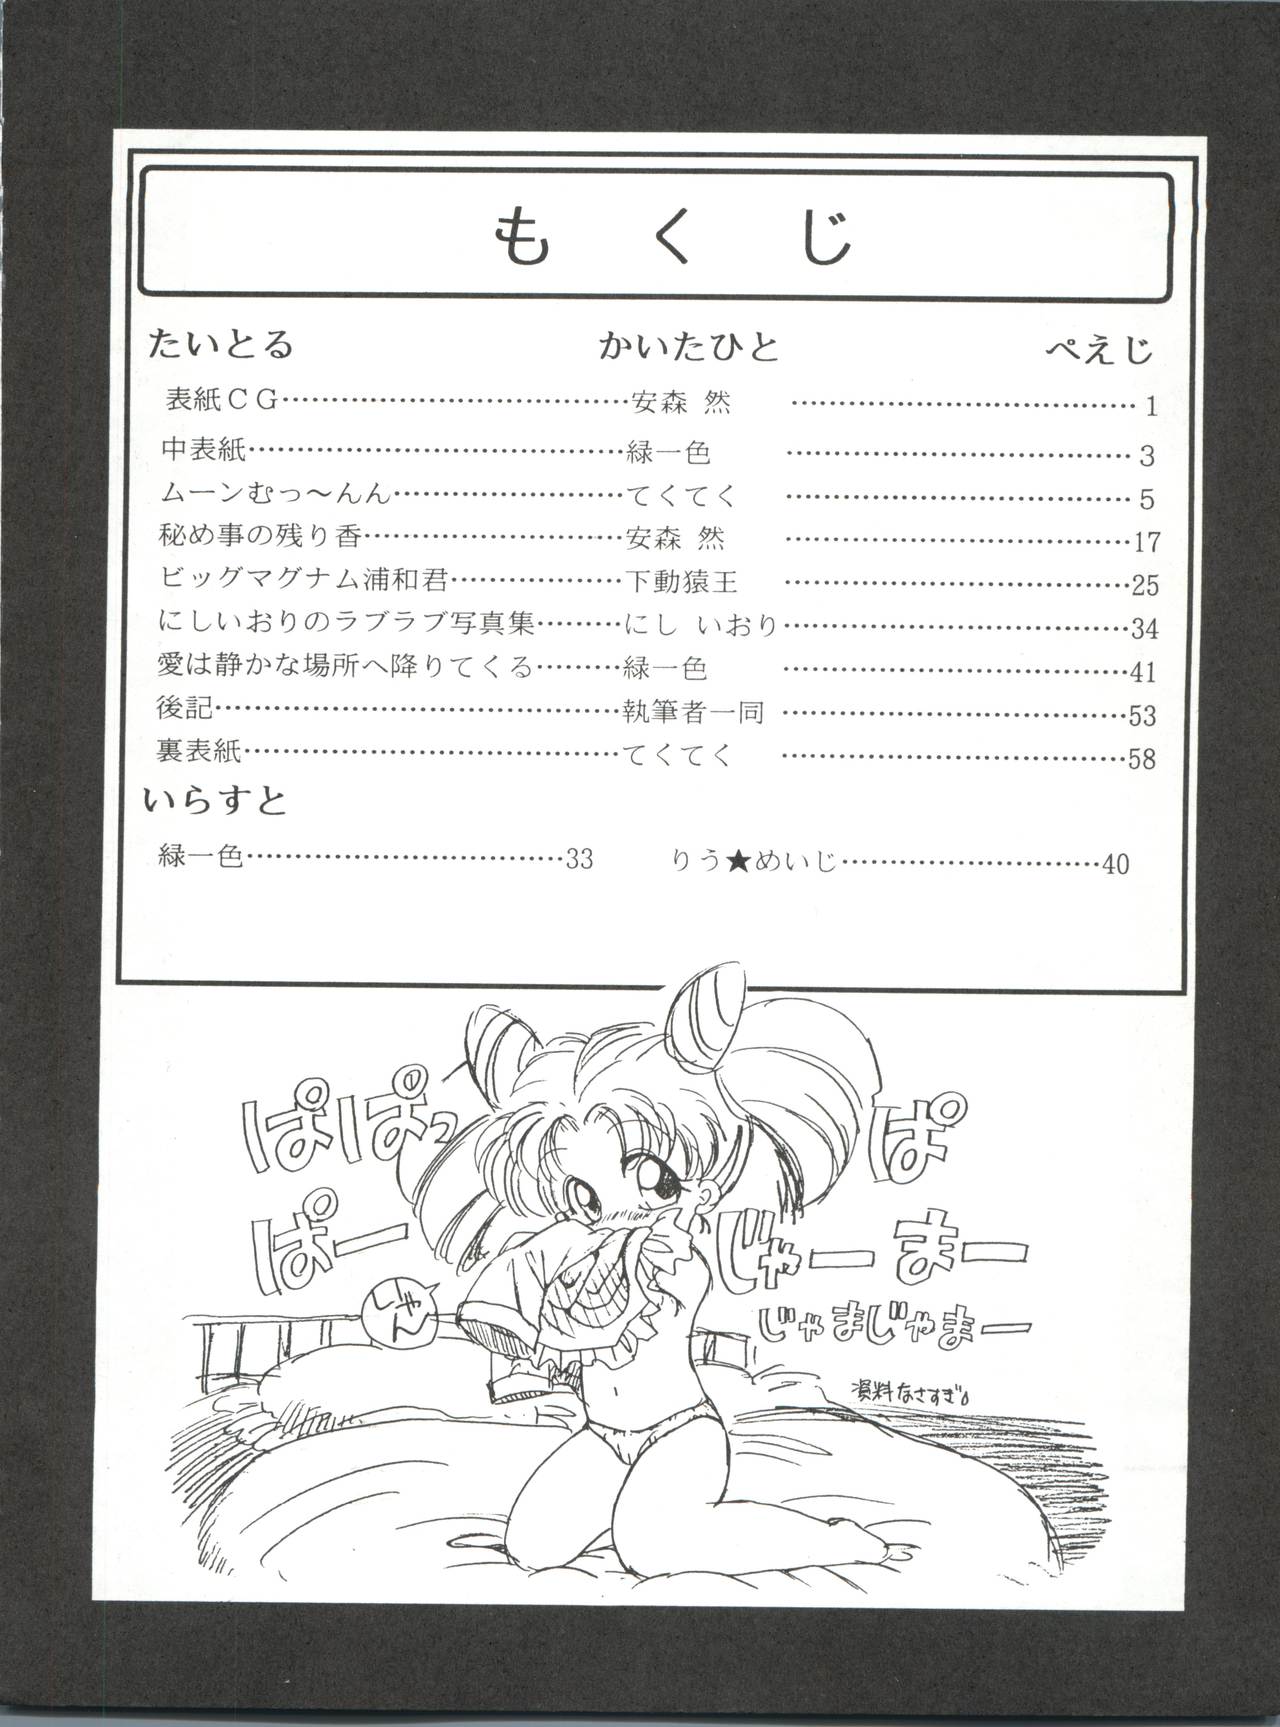 もくじ
たいとる かいたひと ぺえじ
表紙ＣＧ…………………………………安森 然 …………………………………1
中表紙…………………………………緑一色 …………………………………3
ムーンむっ～んん……………………てくてく …………………………………5
秘め事の残り香………………………安森 然 …………………………………17
ビッグマグナム浦和君………………下動猿王 …………………………………25
にしいおりのラブラブ写真集………にし いおり…………………………………34
愛は静かな場所へ降りてくる………緑一色 …………………………………41
後記……………………………………執筆者一同 …………………………………53
裏表紙…………………………………てくてく …………………………………58
いらすと
緑一色……………………………33 りう★めいじ…………………………40
ぱぱぱっ
ぱー
ぱ
じゃーまー
じゃまじゃまー
しゃん
資料なさすぎ。